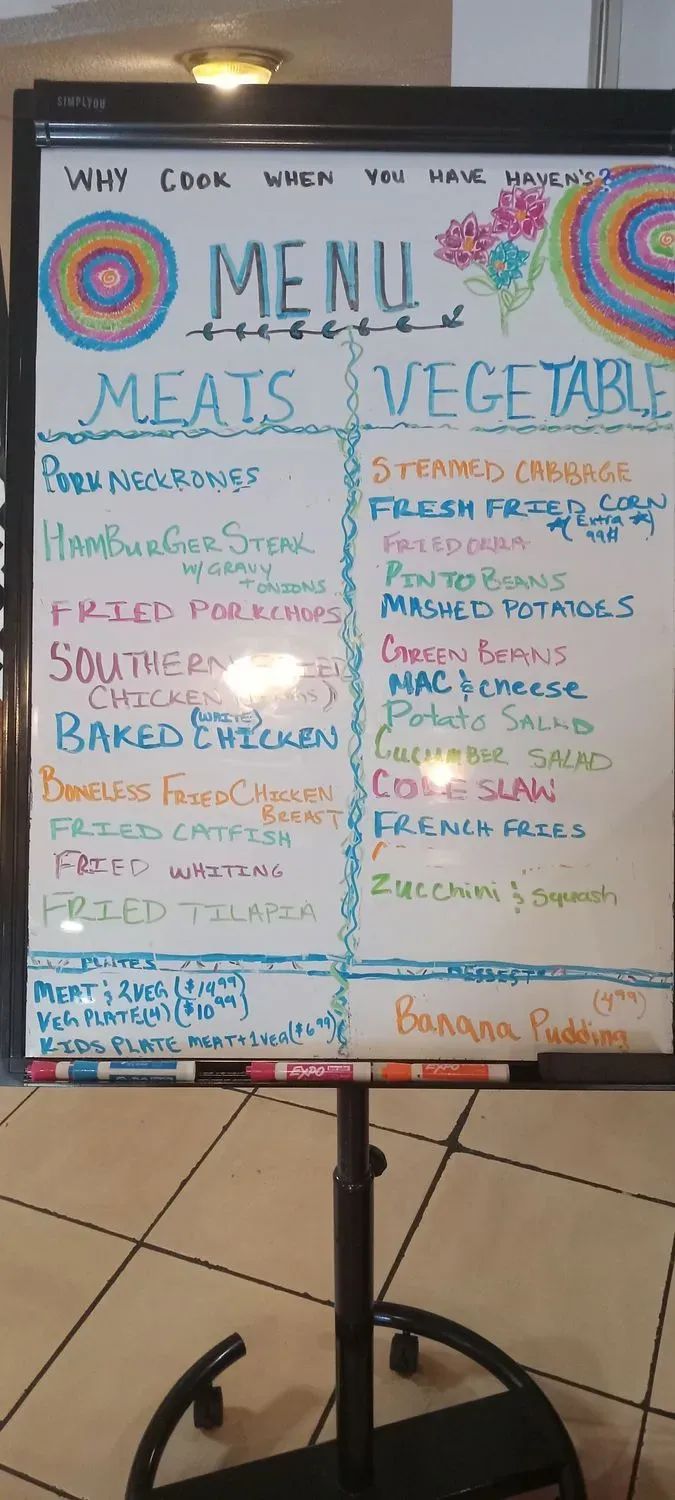 SIMPLYOU
WHY COOK WHEN YOU HAVE HAVEN'S?
MENU
MEATS
PORK NECKBONES
HAMBURGER STEAK
W/ GRAVY
+ ONIONS
FRIED PORKCHOPS
SOUTHERN FRIED
CHICKEN
BAKED CHICKEN
(WHITE)
BONELESS FRIED CHICKEN
BREAST
FRIED CATFISH
FRIED WHITING
FRIED TILAPIA
VEGETABLE
STEAMED CABBAGE
FRESH FRIED CORN
(Extra
99¢)
FRIED OKRA
PINTO BEANS
MASHED POTATOES
GREEN BEANS
MAC & cheese
Potato SALAD
CUCUMBER SALAD
COLE SLAW
FRENCH FRIES
Zucchini & Squash
PLATES
MEAT & 2VEG ($14.99)
VEG PLATE(4) ($10.99)
KIDS PLATE MEAT+1VEG($6.99)
DESSERT
(4.99)
Banana Pudding
EXPO
EXPO